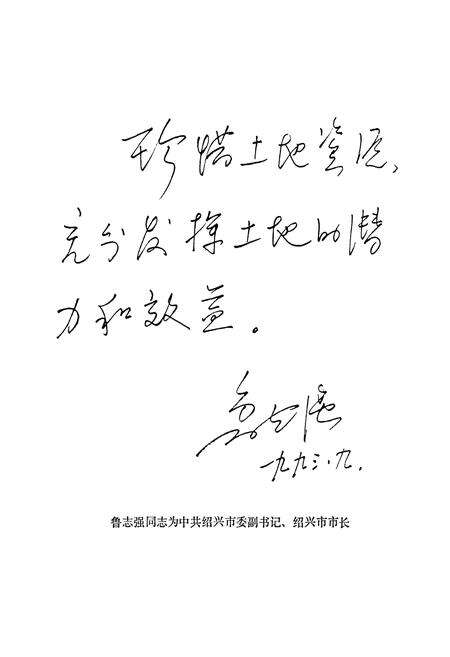 珍惜土地资源、
充分发挥土地的潜
力和效益。
鲁志强
一九九三·九.
鲁志强同志为中共绍兴市委副书记、绍兴市市长